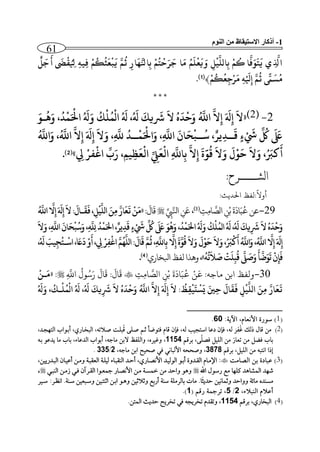 1- أذكار الاستيقاظ من النوم
61
الَّذِي يَتَوَفَّاكُم بِاللَّيْلِ وَيَعْلَمُ مَا جَرَحْتُم بِالنَّهَارِ ثُمَّ يَبْعَثُكُمْ فِيهِ لِيُقْضَى أَجَلٌ
مُّسَمًّى ثُمَّ إِلَيْهِ مَرْجِعُكُمْ﴾(1).
***
2- (2)لاَ إِلَهَ إِلاَّ اللَّهُ وَحْدَهُ لاَ شَرِيكَ لَهُ، لَهُ الْمُلْكُ وَلَهُ الْحَمْدُ، وَهُوَ
عَلَى كُلِّ شَيْءٍ قَدِيرٌ، سُبْحَانَ اللَّهِ، وَالْحَمْدُ لِلَّهِ، وَلاَ إِلَهَ إِلاَّ اللَّهُ، وَاللَّهُ
أَكْبَرُ، وَلاَ حَوْلَ وَلاَ قُوَّةَ إِلاَّ بِاللَّهِ الْعَلِيِّ الْعَظِيمِ، رَبِّ اغْفِرْ لِي(2).
الشرح:
أولاً: لفظ الحديث:
29- عَنْ عُبَادَةَ بْنِ الصَّامِتِ(3)، عَنِ النَّبِيِّ ﷺ قَالَ: «مَنْ تَعَارَّ مِنَ اللَّيْلِ، فَقَالَ: لاَ إِلَهَ إِلاَّ اللَّهُ
وَحْدَهُ لاَ شَرِيكَ لَهُ لَهُ الْمُلْكُ وَلَهُ الْحَمْدُ، وَهُوَ عَلَى كُلِّ شَيْءٍ قَدِيرٌ، الْحَمْدُ لِلَّهِ، وَسُبْحَانَ اللَّهِ، وَلاَ
إِلَهَ إِلاَّ اللَّهُ، وَاللَّهُ أَكْبَرُ، وَلاَ حَوْلَ وَلاَ قُوَّةَ إِلاَّ بِاللَّهِ، ثُمَّ قَالَ: اللَّهُمَّ اغْفِرْ لِي، أَوْ دَعَا، اسْتُجِيبَ لَهُ،
فَإِنْ تَوَضَّأَ وَصَلَّى قُبِلَتْ صَلاَتُهُ»، وهذا لفظ البخاري(4).
30- ولفظ ابن ماجه: عَنْ عُبَادَةَ بْنِ الصَّامِتِ ﷺ قَالَ: قَالَ رَسُولُ اللَّهِ ﷺ: «مَنْ
تَعَارَّ مِنَ اللَّيْلِ فَقَالَ حِينَ يَسْتَيْقِظُ: لاَ إِلَهَ إِلاَّ اللَّهُ وَحْدَهُ لاَ شَرِيكَ لَهُ، لَهُ الْمُلْكُ، وَلَهُ
(1) سورة الأنعام، الآية: 60.
(2) من قال ذلك غُفر له، فإن دعا استجيب له، فإن قام فتوضأ ثم صلى قُبلت صلاته، البخاري، أبواب التهجد،
باب فضل من تعارّ من الليل فصلّى، برقم 1154، وغيره، واللفظ لابن ماجه، أبواب الدعاء، باب ما يدعو به
إذا انتبه من الليل، برقم 3878، وصححه الألباني في صحيح ابن ماجه، 2/ 335.
(3) عبادة بن الصامت: الإمام القدوة أبو الوليد الأنصاري، أحد النقباء ليلة العقبة ومن أعيان البدريين،
شهد المشاهد كلها مع رسول الله ﷺ وهو واحد من خمسة من الأنصار جمعوا القرآن في زمن النبي ﷺ،
مسنده مائة وواحد وثمانين حديثًا. مات بالرملة سنة أربع وثلاثين وهو ابن اثنتين وسبعين سنة. انظر: سير
أعلام النبلاء، 2/ 5، ترجمة رقم (1).
(4) البخاري، برقم 1154، وتقدم تخريجه في تخريج حديث المتن.